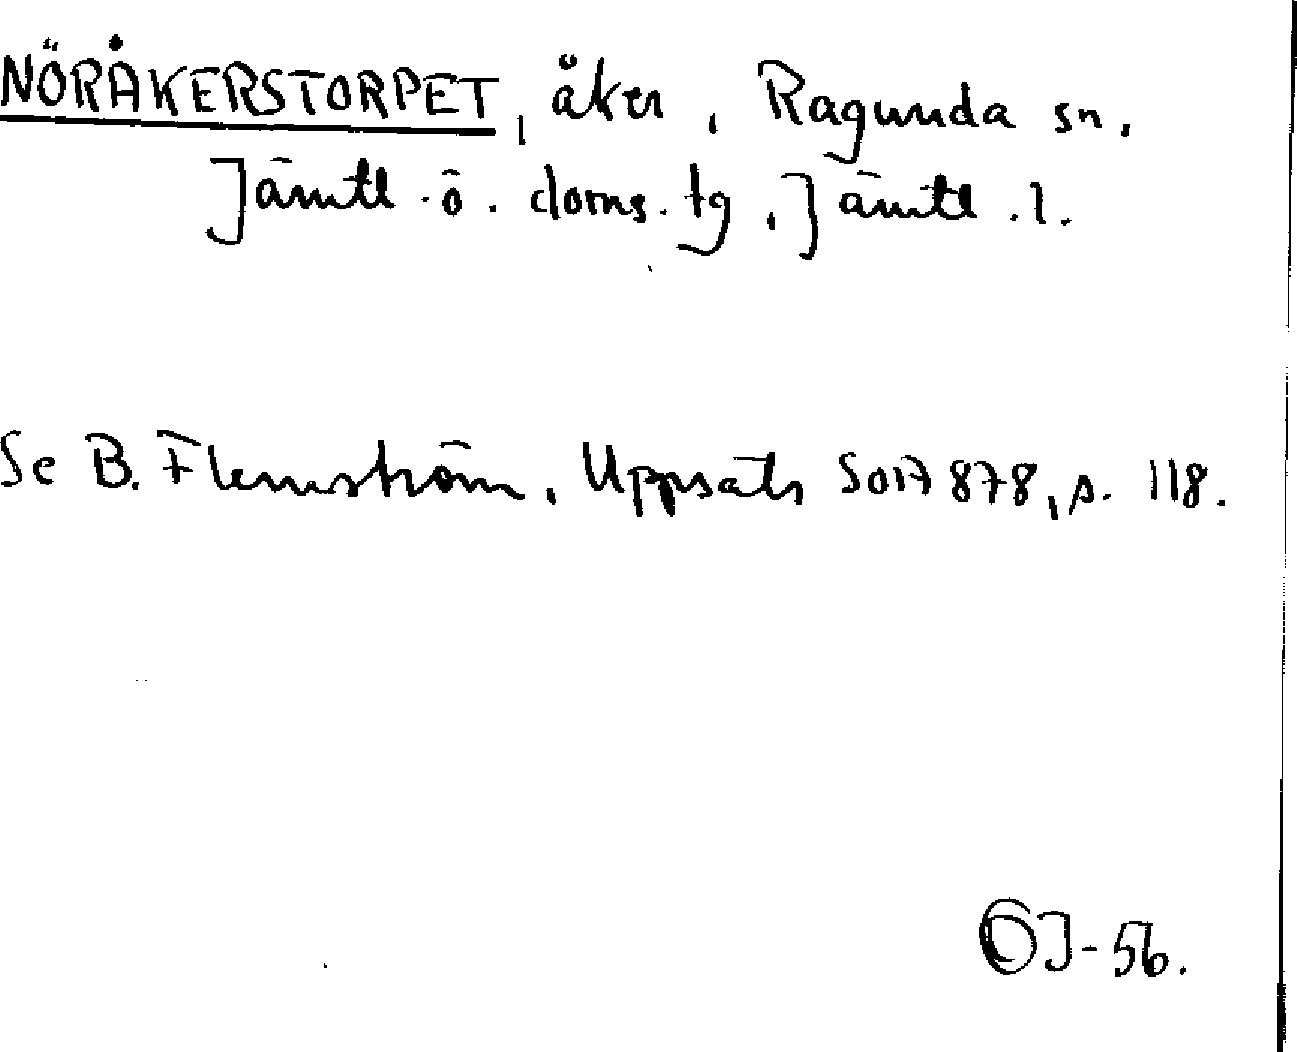 NÖRÅKERSTORPET, åker, Ragunda sn.
Jämtl. ö. doms. tg, Jämtl. l.
Se B. Flemström, Uppsats SOA 878, s. 118.
OJ-56.